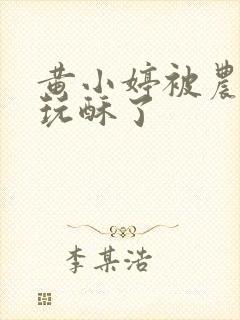 黄小婷被農
玩酥了
李某浩